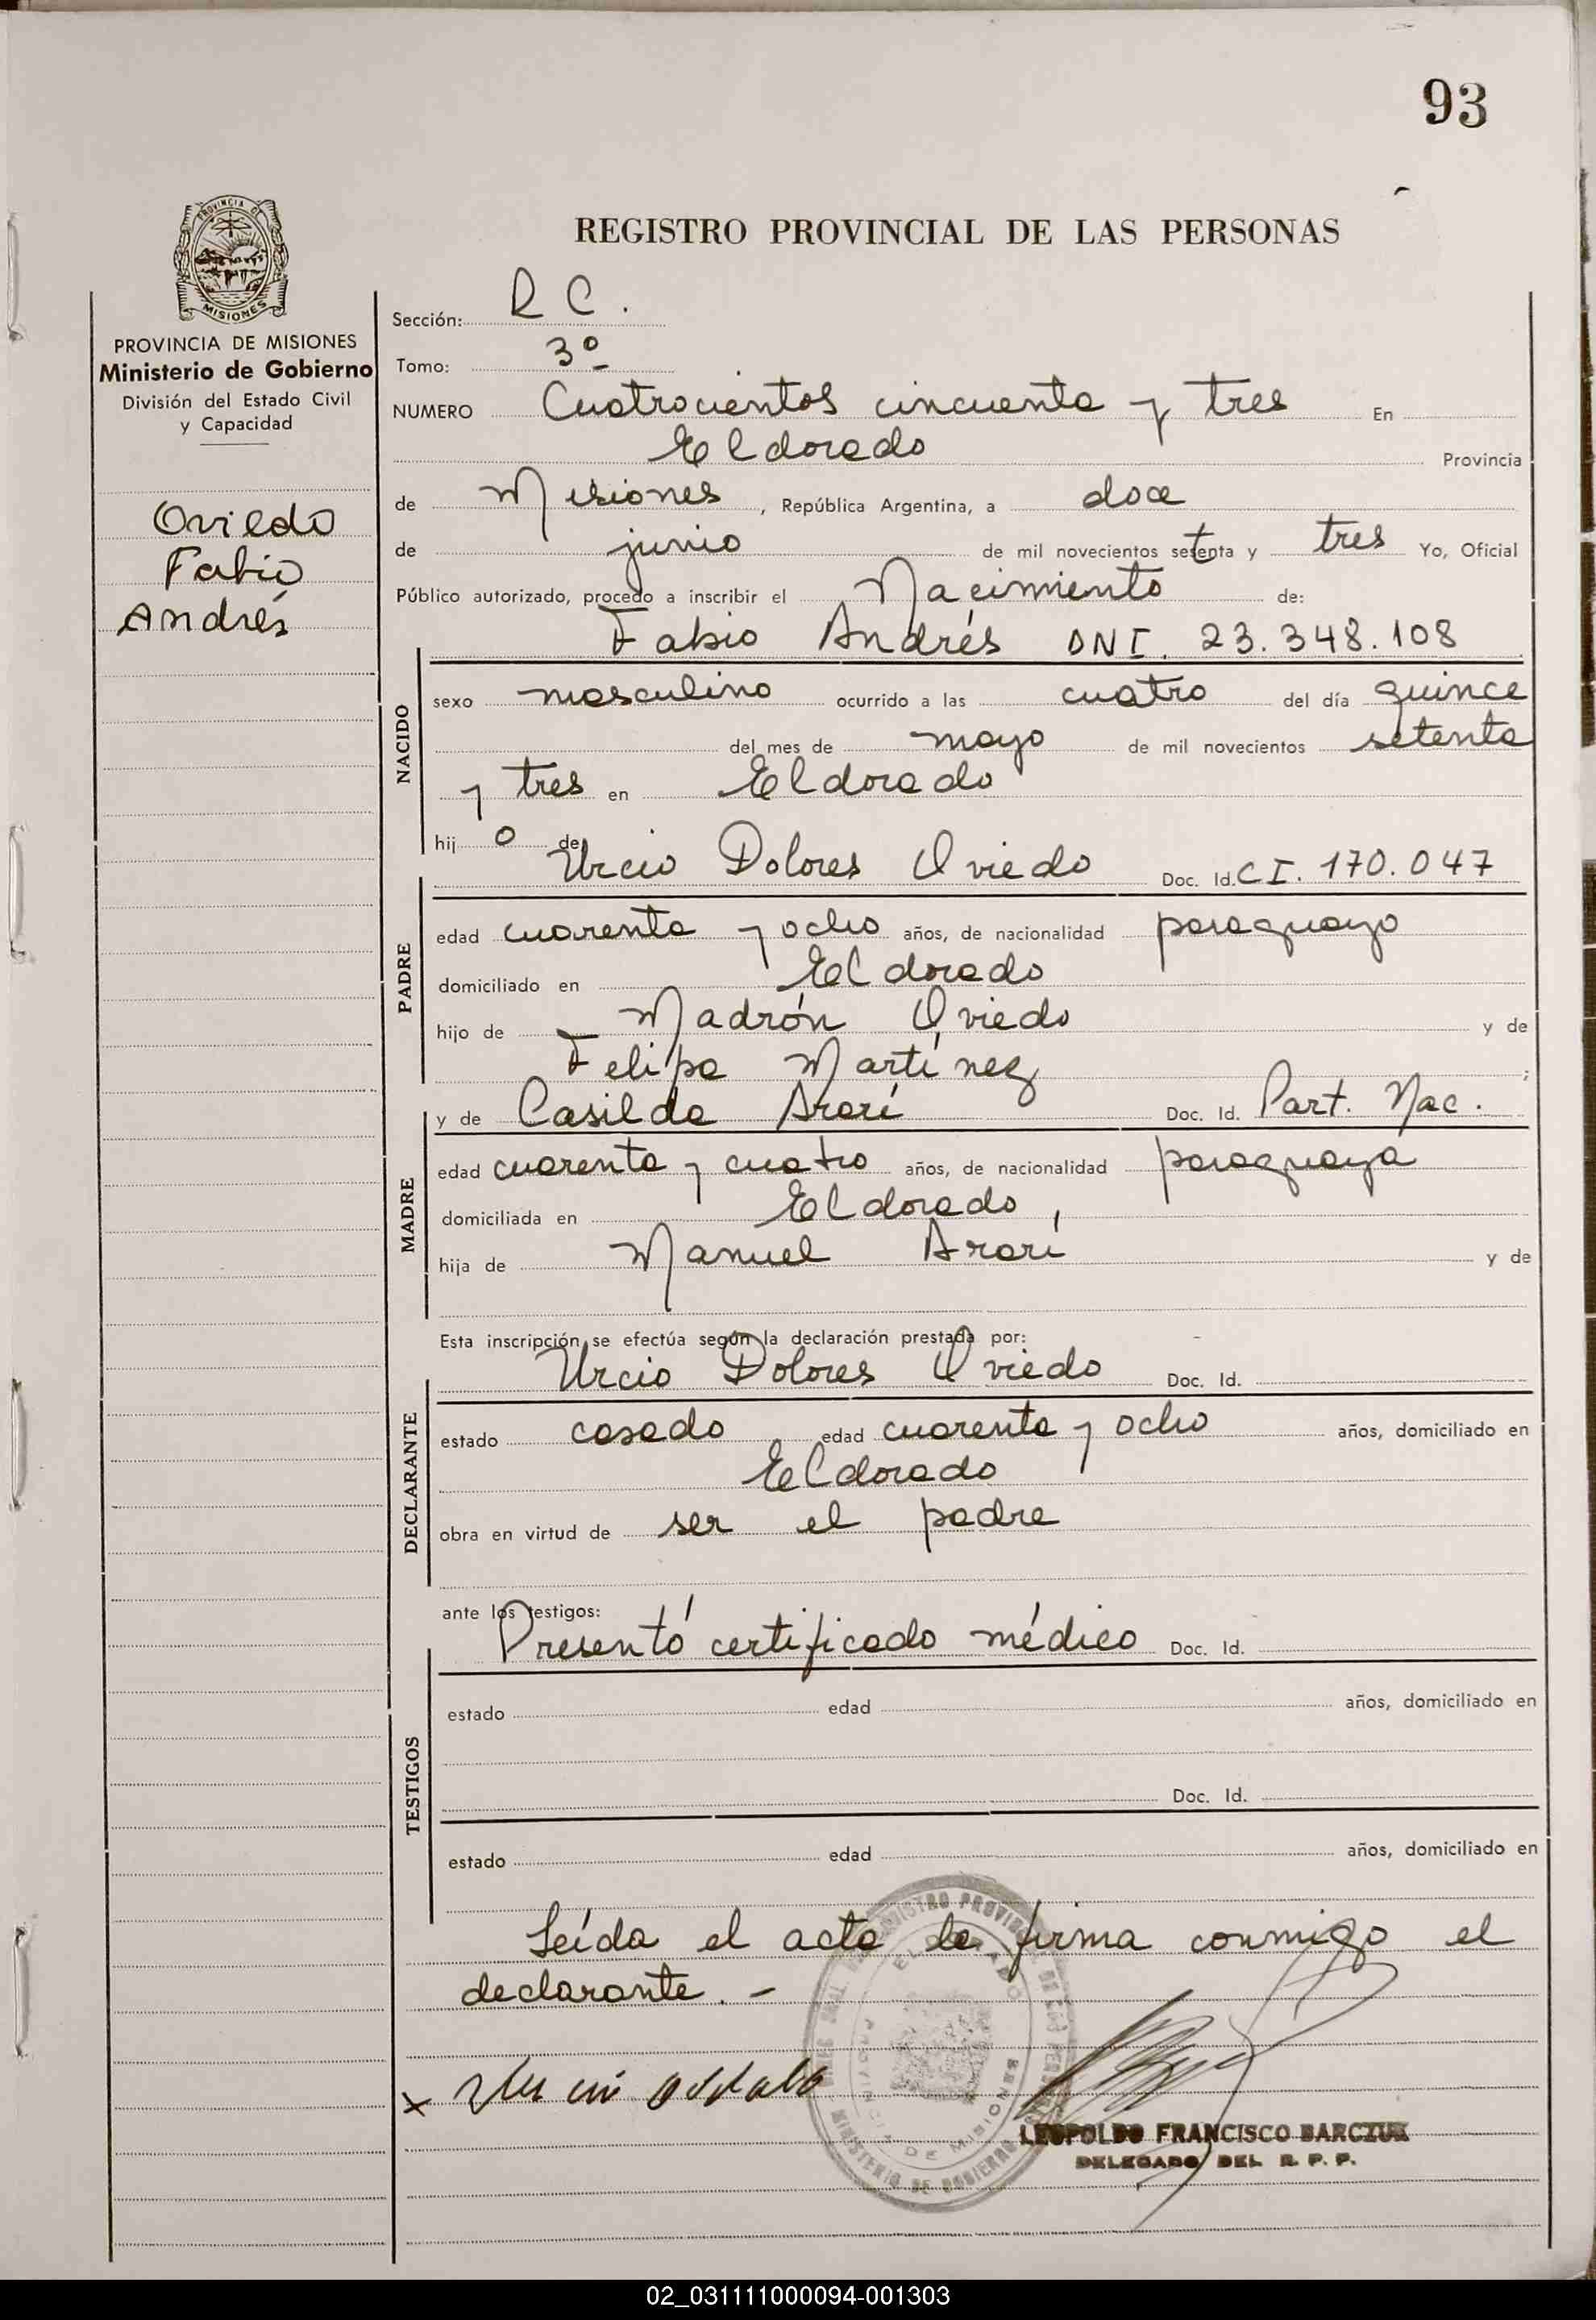 93
PROVINCIA DE
MISIONES
REGISTRO PROVINCIAL DE LAS PERSONAS
PROVINCIA DE MISIONES
Ministerio de Gobierno
División del Estado Civil
y Capacidad
Oviedo
Fabio
Andrés
Sección: R C.
Tomo: 3º
NUMERO Cuatrocientos cincuenta y tres En
Eldorado Provincia
de Misiones, República Argentina, a doce
de junio de mil novecientos setenta y tres Yo, Oficial
Público autorizado, procedo a inscribir el Nacimiento de:
Fabio Andrés DNI. 23.348.108
NACIDO
sexo masculino ocurrido a las cuatro del día quince
del mes de mayo de mil novecientos setenta
y tres en Eldorado
hijo de
Urcio Dolores Oviedo Doc. Id. CI. 170.047
PADRE
edad cuarenta y ocho años, de nacionalidad paraguayo
domiciliado en Eldorado
hijo de Madrón Oviedo y de
Felipa Martínez ;
y de Casilda Ararí Doc. Id. Part. Nac.
MADRE
edad cuarenta y cuatro años, de nacionalidad paraguaya
domiciliada en Eldorado,
hija de Manuel Ararí y de
Esta inscripción se efectúa según la declaración prestada por:
Urcio Dolores Oviedo Doc. Id.
DECLARANTE
estado casado edad cuarenta y ocho años, domiciliado en
Eldorado
obra en virtud de ser el padre
ante los testigos:
Presentó certificado médico Doc. Id.
TESTIGOS
estado edad años, domiciliado en
Doc. Id.
estado edad años, domiciliado en
Leída el acta la firma conmigo el
declarante. -
x
MINISTERIO DE GOBIERNO
PROVINCIA DE MISIONES
LEOPOLDO FRANCISCO BARCZUK
DELEGADO DEL R. P. P.
02_031111000094-001303